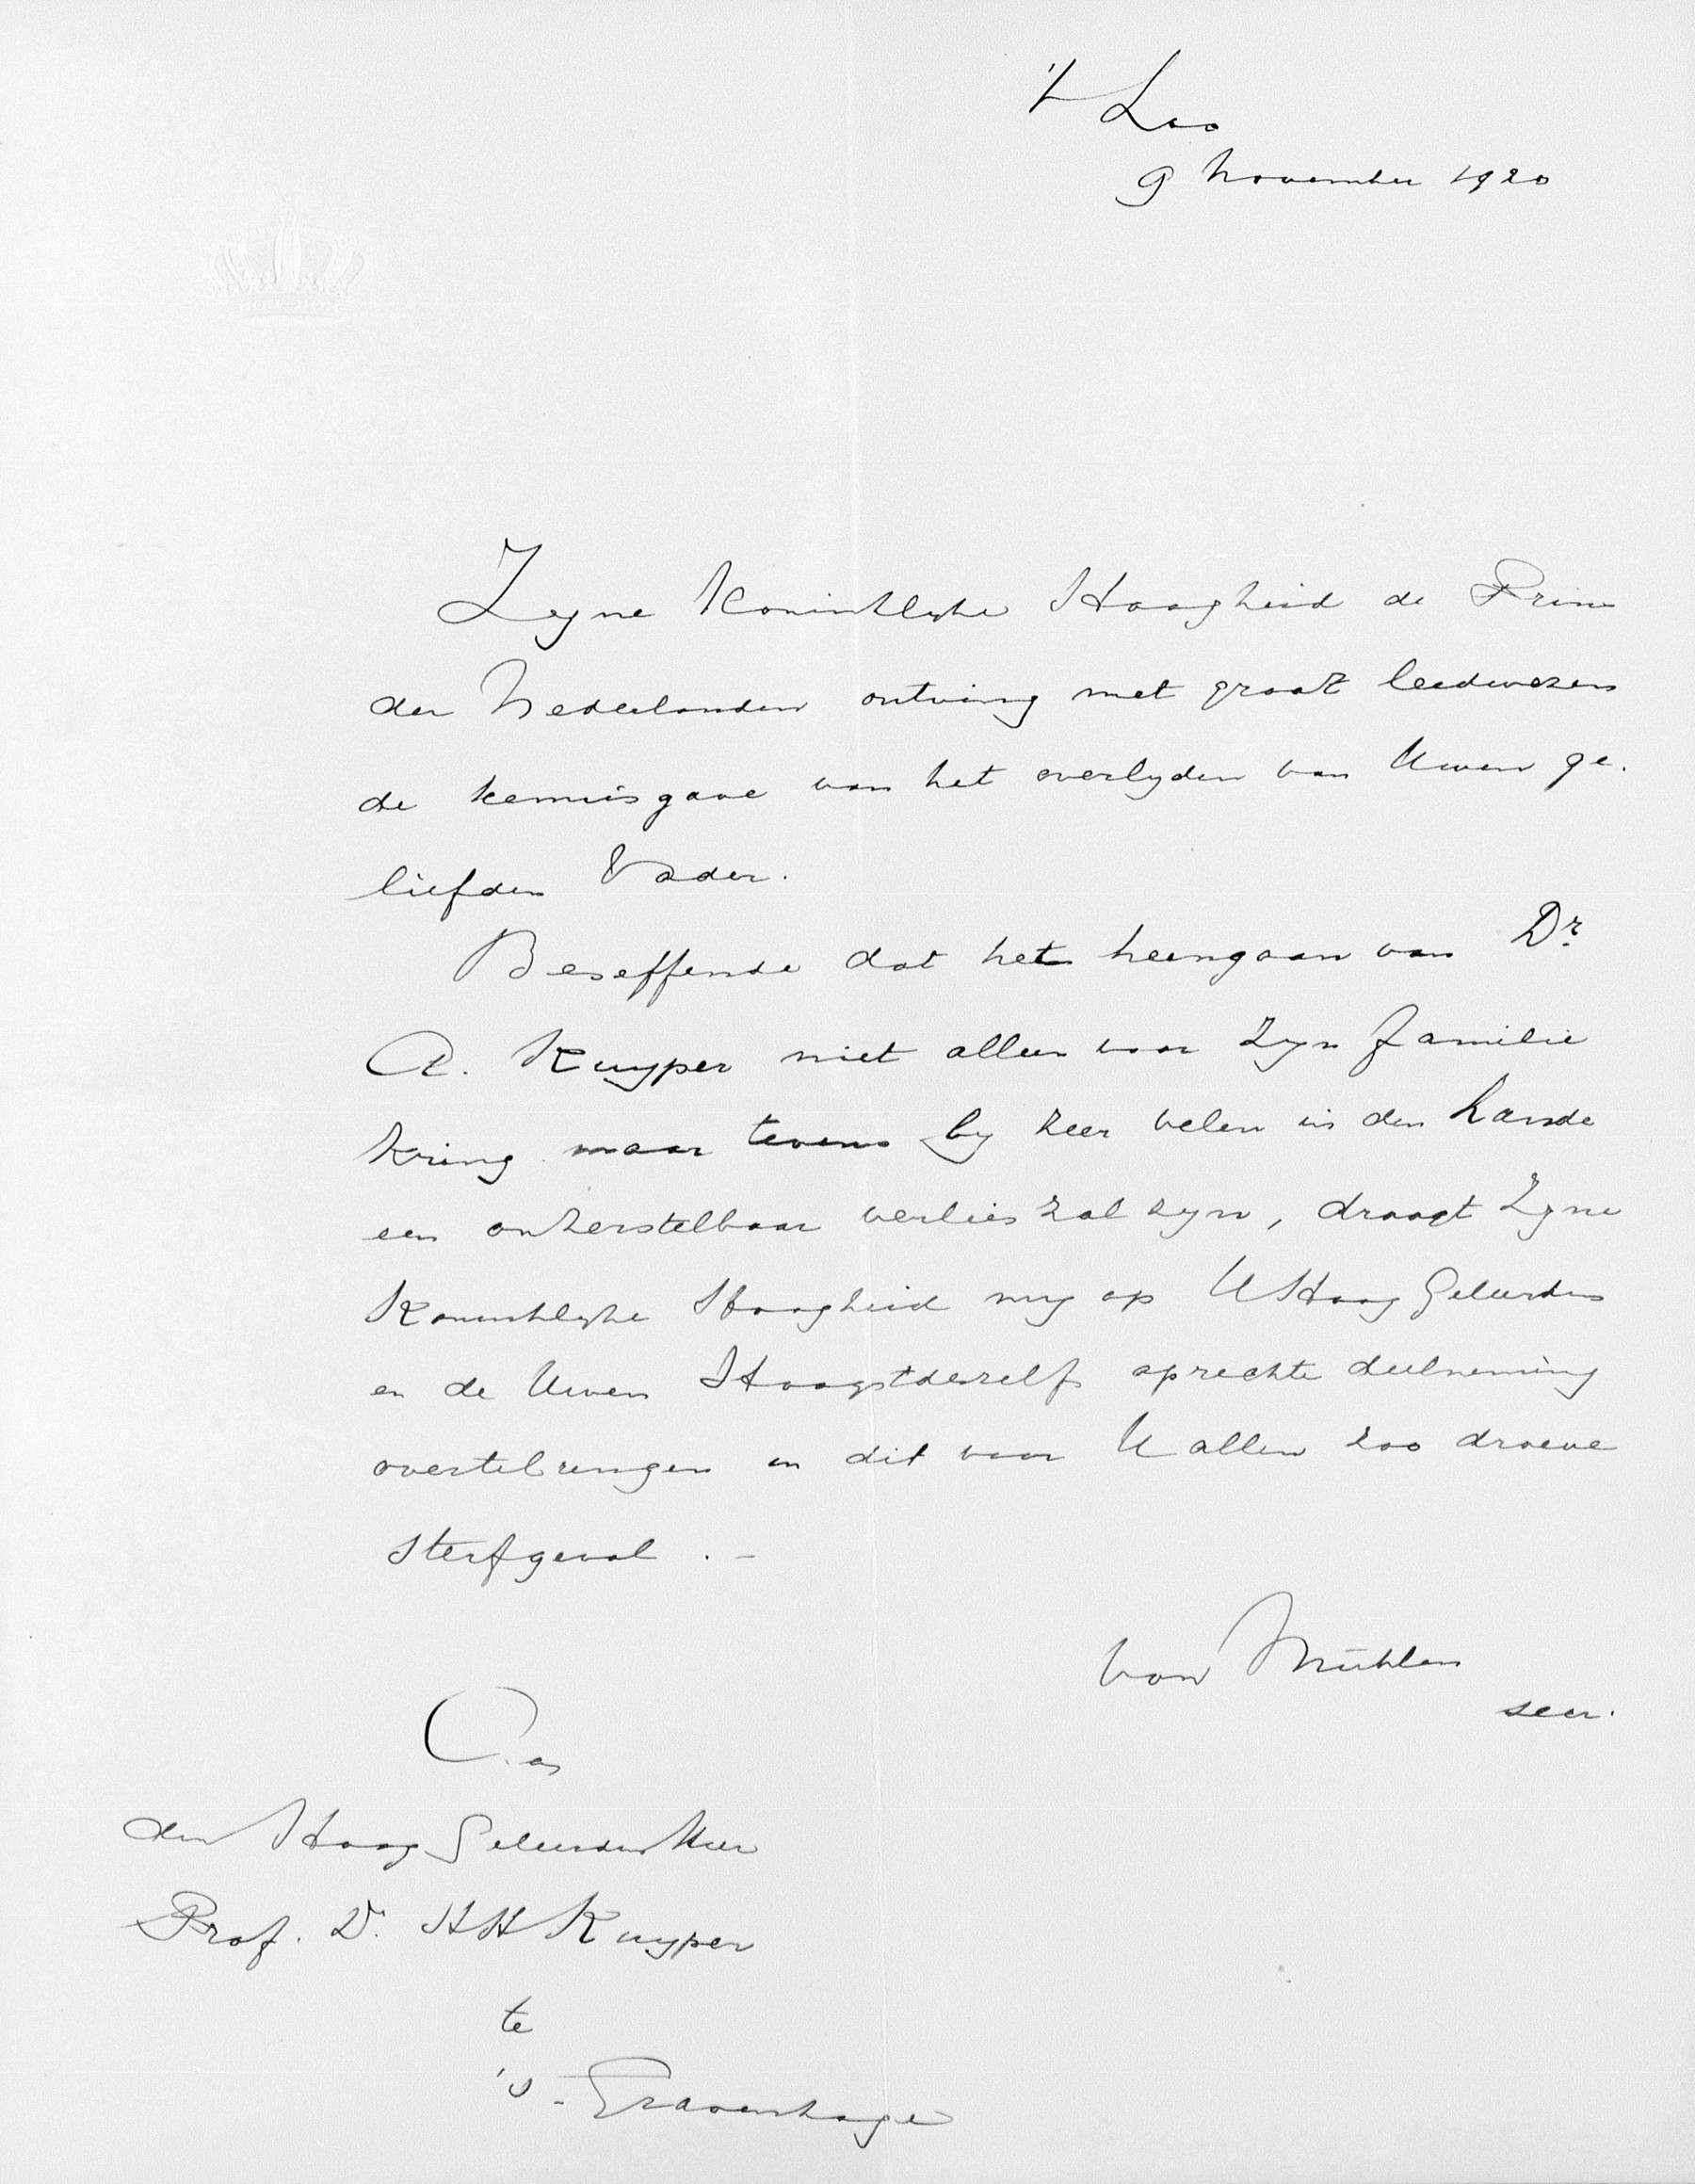 't Loo
9 November 1920
Zyne Koninklyke Hoogheid de Prins
der Nederlanden ontving met groot leedwezen
de kennisgave van het overlyden van Uwen ge-
liefden Vader.
Beseffende dat het heengaan van Dr.
A. Kuyper niet alleen voor Zyn familie
kring maar tevens by zeer velen in den Lande
een onherstelbaar verlies zal zyn, draagt Zyne
Koninklyke Hoogheid my op U HoogGeleerden
en de Uwen Hoogstdeszelfs oprechte deelneming
overtebrengen in dit voor U allen zoo droeve
sterfgeval . -
von Mühlen
secr.
Aan
den HoogGeleerden Heer
Prof. Dr. HH Kuyper
te
's-Gravenhage